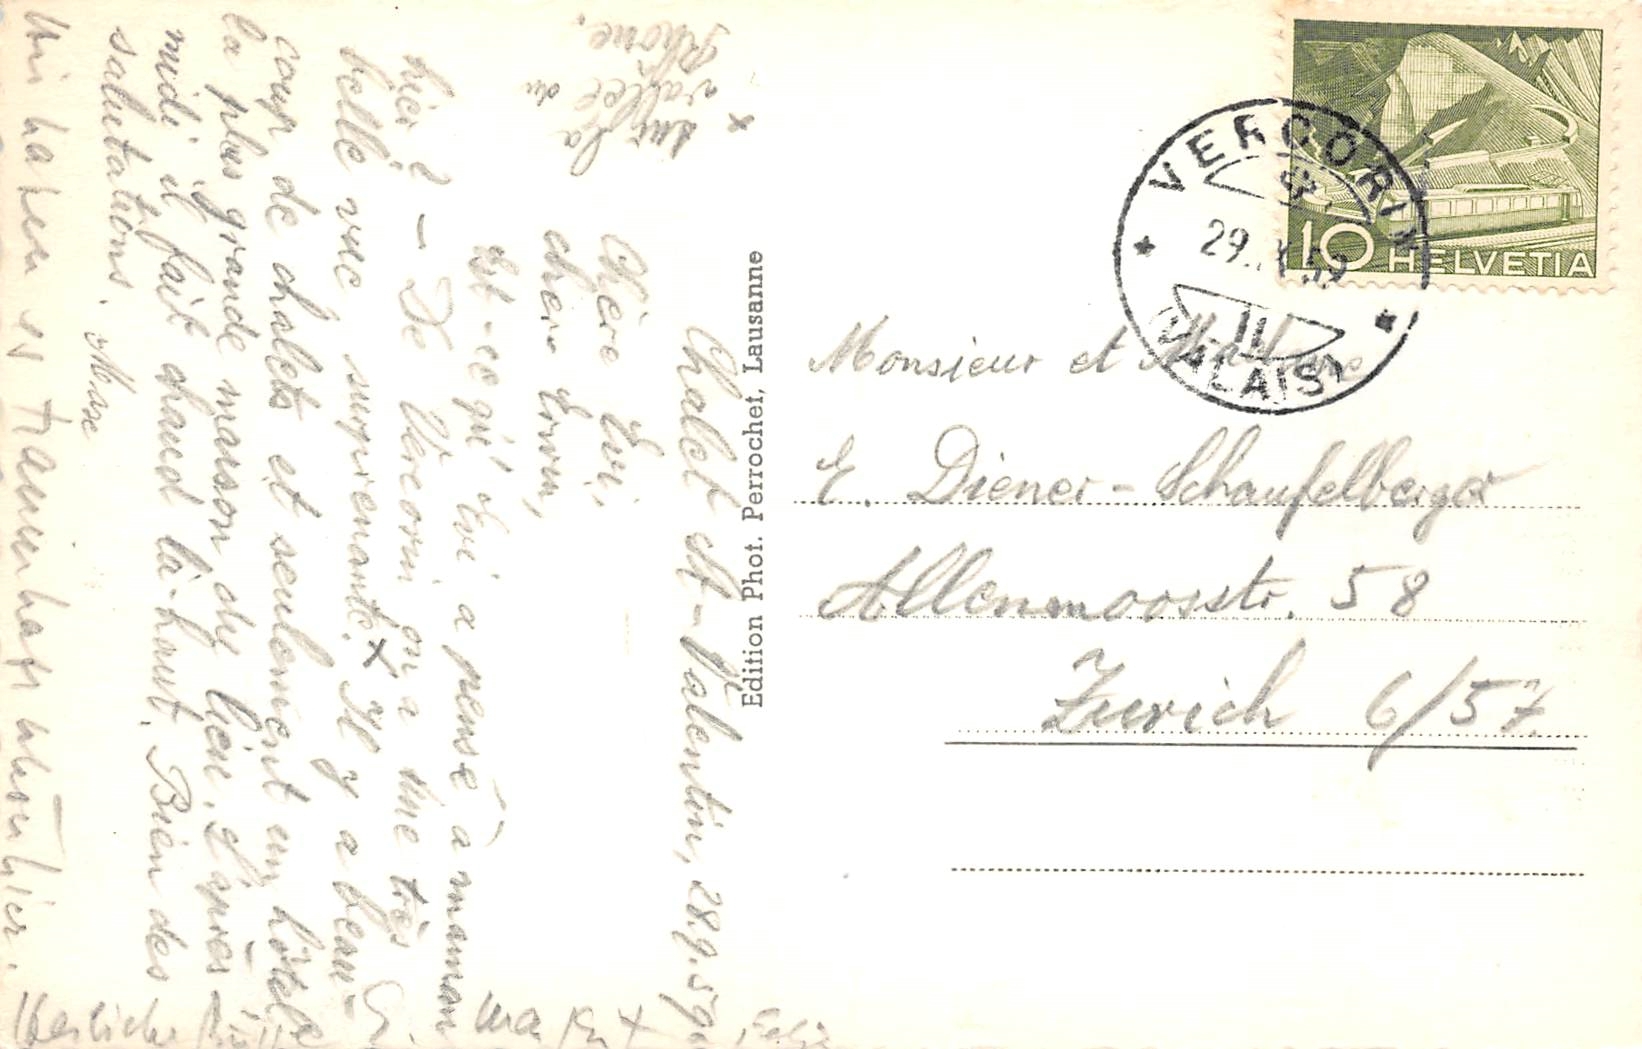 Chalet St-Valentin, 28.9.59.
Chère Lui,
cher Erwin,
Est-ce qu' Evi a pensé à maman
hier? - De Vercorin on a une très
belle vue surprenante.x Il y a beau-
coup de chalets et seulement un hôtel,
la plus grande maison du lieu. L'après
midi il fait chaud là-haut. Bien des
salutations. Max
x sur la
vallée du
Rhône.
Wir haben es traumhaft schön hier.
Herzliche Grüsse
Edition Phot. Perrochet, Lausanne
VERCORIN
29. IX. 59
(VALAIS)
10 HELVETIA
Monsieur et Madame
E. Diener-Schaufelberger
Allenmoosstr. 58
Zurich 6/57.